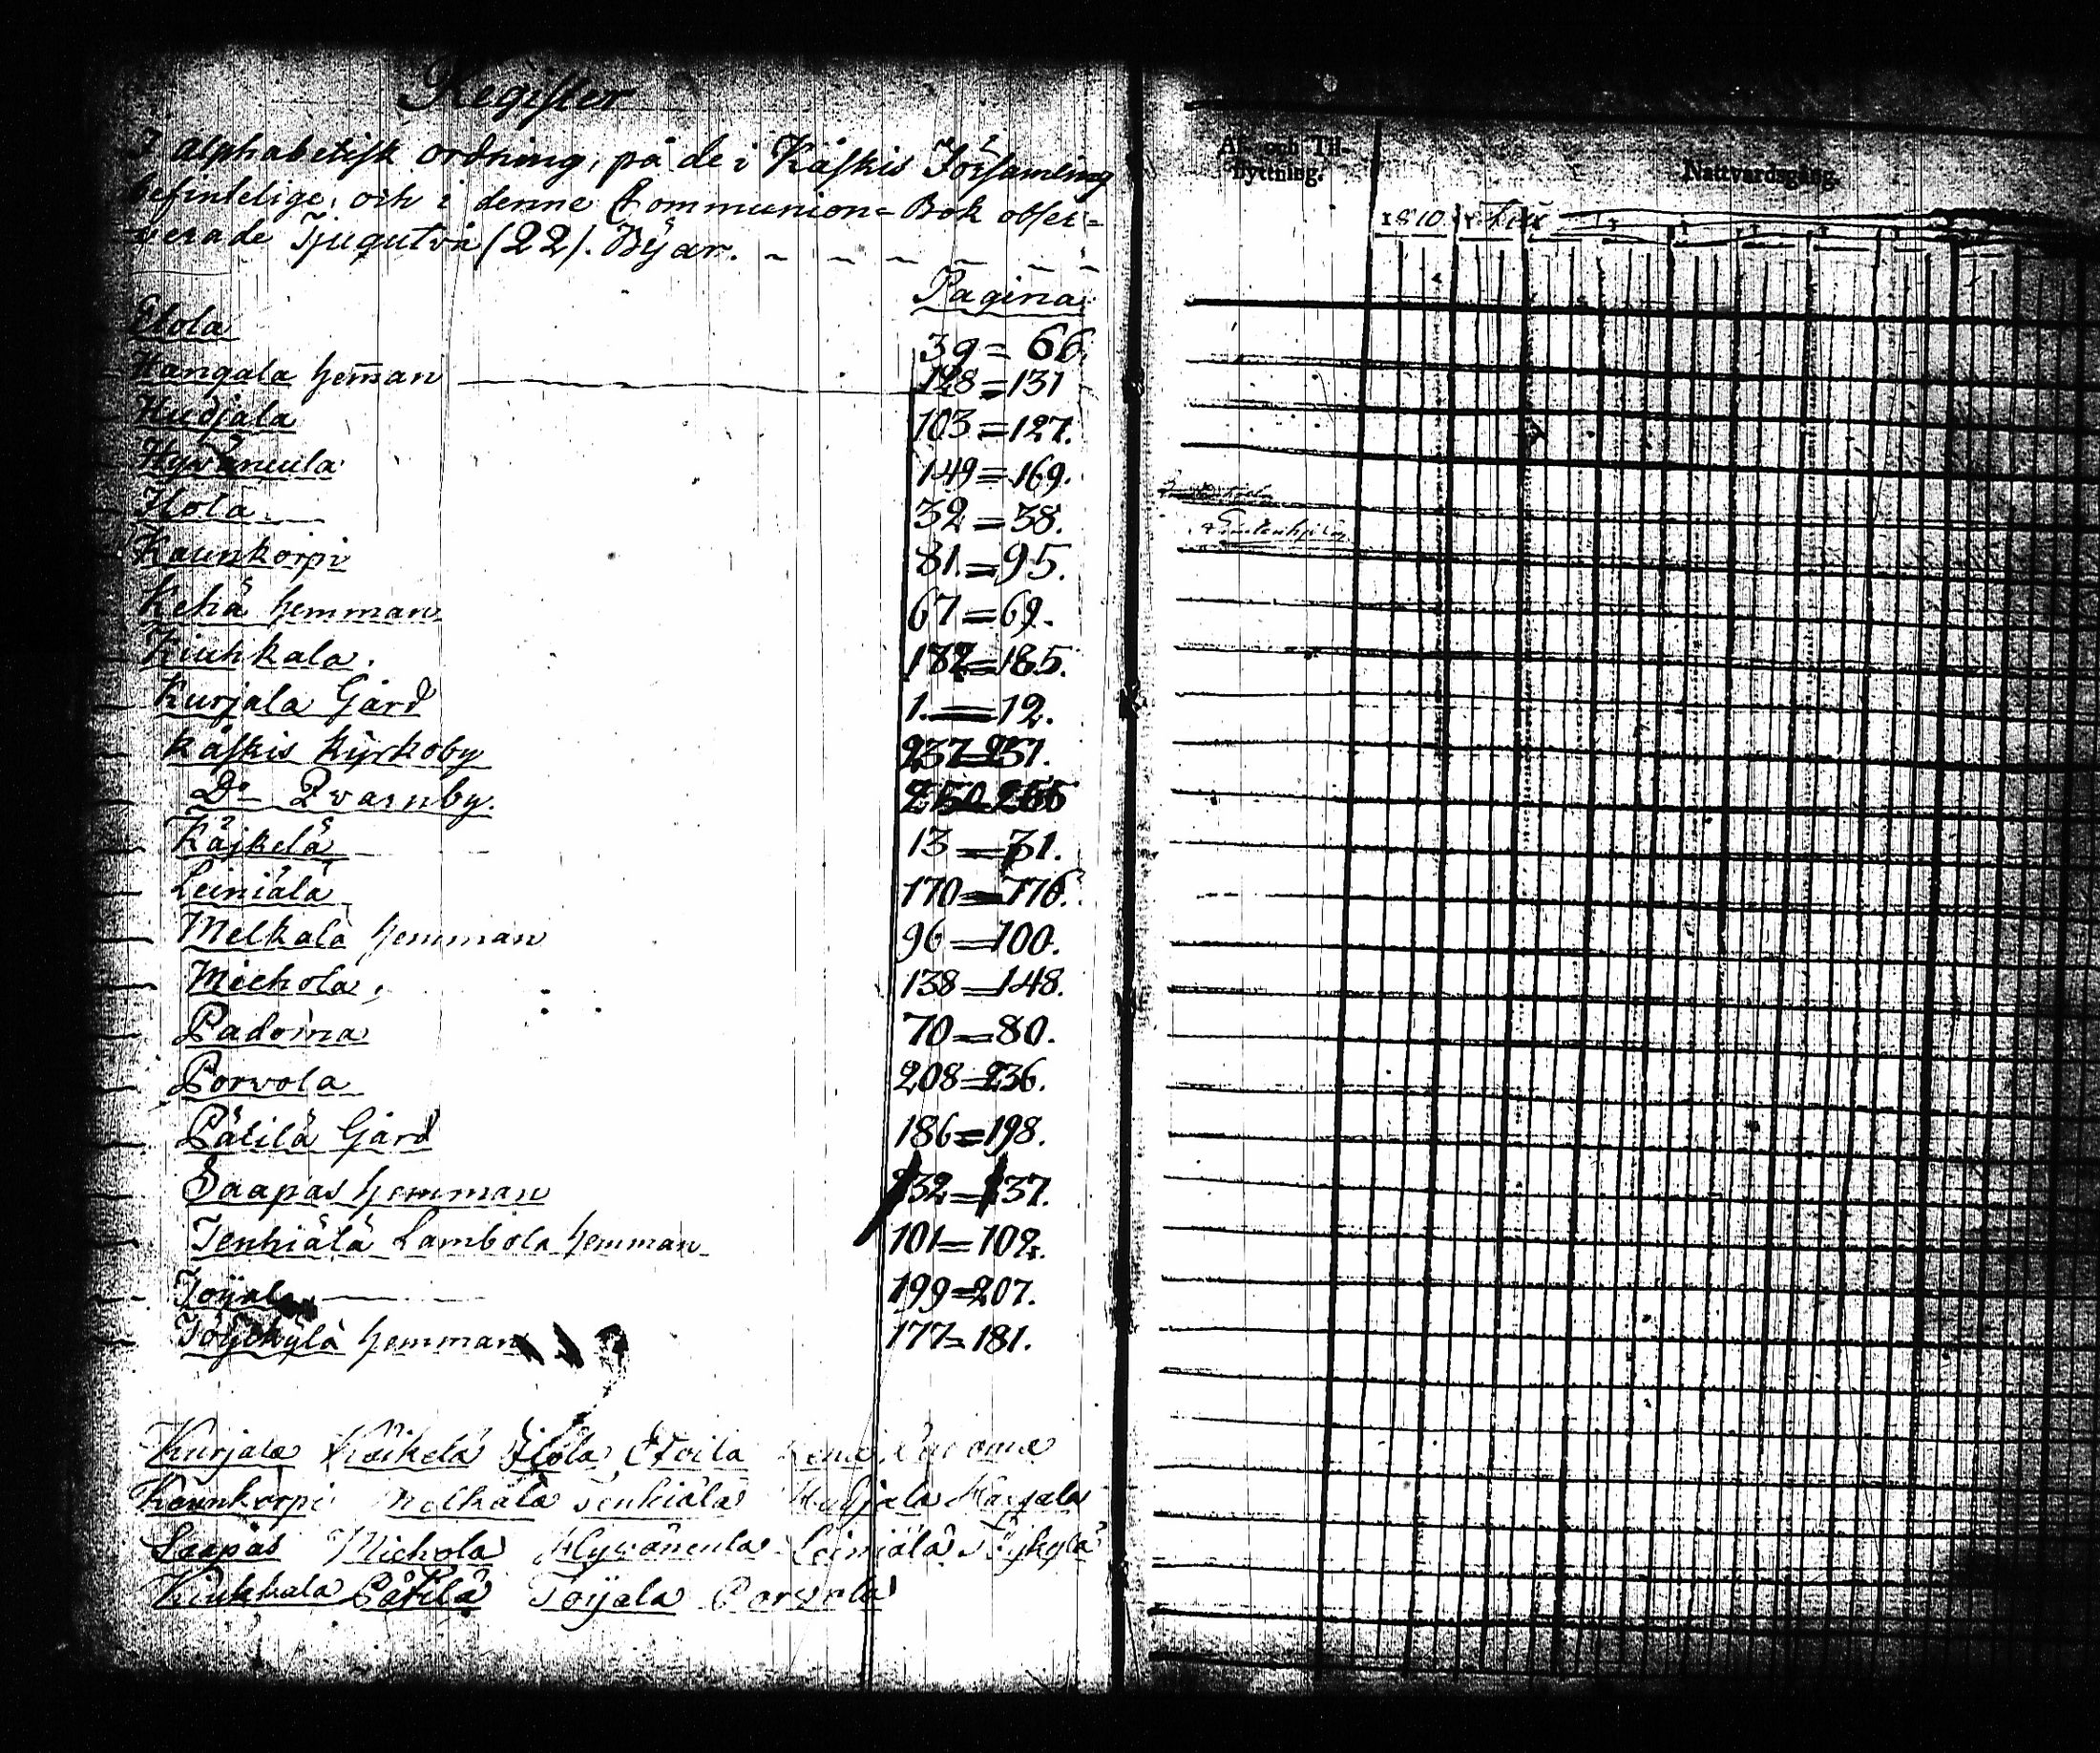 Register
I alphabetisk ordning, på de i Kåskis Församling
befintelige, och i denne Communion=Bok obser=
verade Tjugutvå (22). Byar.
Pagina
Elola 39=66
Hangala hem̄an 128=131
Hudjala 103=127.
Hyvöneula 149=169.
Ilola 32=38.
Kaunkorpi 81.=95.
Kehä hemman 67=69.
Kiuhkala. 182=185.
Kurjala Gård 1.=12.
Kåskis Kyrkoby 237=251.
Do Qvarnby. 250=255
Käjkelä 13=31.
Leiniälä 170=176.
Melkala hemman 96=100.
Miehola. 138=148.
Padoma 70=80.
Porvola 208=236.
Pätilä Gård 186=198.
Saapas hemman 132=137.
Tenhiälä Lambola hemman 101=102.
Toijala 199=207.
Töykylä hemman 177=181.
Kurjala Käikelä Ilola
Kaunkorpi Melkala Tenhiälä Hudjala Hangala
Saapas Miehola Hyvöneula Leiniälä Töykylä
Kiukkala Pätilä Toijala Porvola
Af- och Til-
flyttning.
Nattvardsgång.
1810.